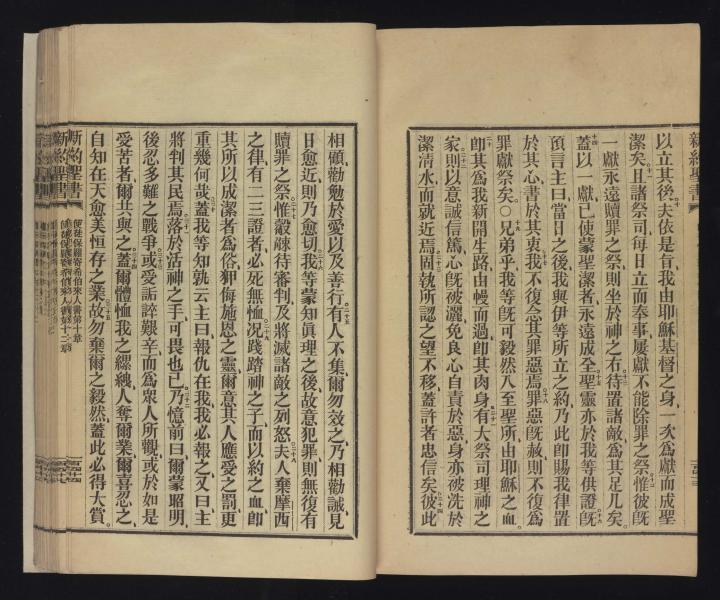 新約聖書
以立其後、夫依是旨、我由耶穌基督之身、一次為獻而成聖
潔矣、且諸祭司每日立而奉事、屢獻不能除罪之祭、惟彼旣
一獻永遠贖罪之祭、則坐於神之右、待置諸敵為其足几矣。
蓋以一獻、已使蒙聖潔者、永遠成全、聖靈亦於我等供證、旣
預言主曰、當日之後、我與伊等所立之約乃此、卽賜我律置
於其心、書於其衷、我不復念其罪惡焉、罪惡旣赦、則不復為
罪獻祭矣。○兄弟乎、我等旣可毅然入至聖所、由耶穌之血。
卽其為我新開生路、由幔而過、卽其肉身、有大祭司理神之
家、則以意誠信篤、心旣被灑、免良心自責於惡、身亦被洗於
潔清水、而就近焉、固執所認之望不移、蓋許者忠信矣、彼此
相顧、勸勉於愛以及善行、有人不集、爾勿效之、乃相勸誡、見
日愈近、則乃愈切、我等蒙知眞理之後、故意犯罪、則無復有
贖罪之祭、惟觳觫待審判、及將滅諸敵之烈怒、夫人棄摩西
之律、有二三證者、必死無恤、况踐踏神之子、而以約之血、卽
其所以成潔者為俗、狎侮施恩之靈、爾意其人應愛之罰、更
重幾何哉、蓋我等知孰云、主曰、報仇在我、我必報之、又曰、主
將判其民焉、落於活神之手、可畏也已、乃憶前曰、爾蒙昭明、
後忍多難之戰爭、或受詬誶艱辛、而為衆人所觀、或於如是
受苦者、爾共與之、蓋爾體恤我之縲絏、人奪爾業、爾喜忍之、
自知在天愈美恒存之業、故勿棄爾之毅然、蓋此必得大賞。
新約聖書
使徒保羅寄希伯來人書第十章